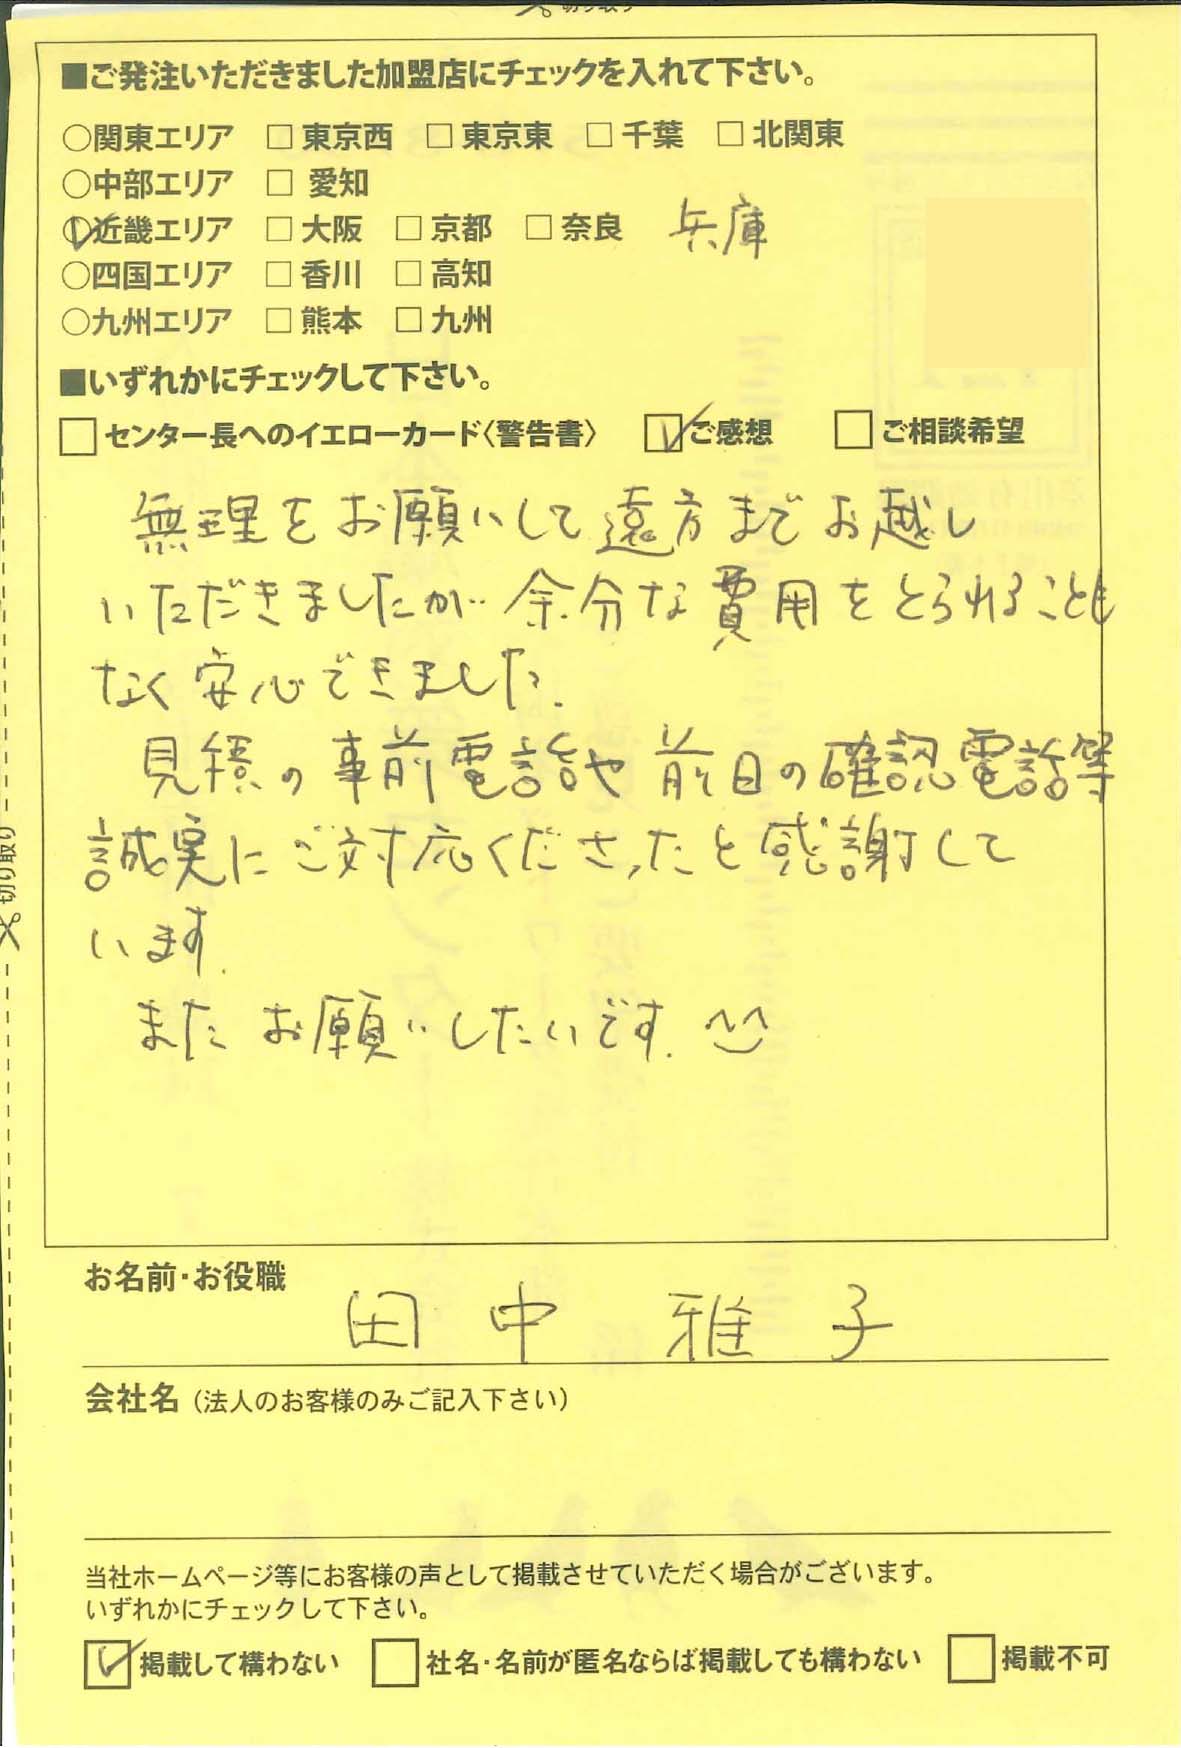 ■ご発注いただきました加盟店にチェックを入れて下さい。
○関東エリア □ 東京西 □ 東京東 □ 千葉 □ 北関東
○中部エリア □ 愛知
○近畿エリア □ 大阪 □ 京都 □ 奈良 兵庫
○四国エリア □ 香川 □ 高知
○九州エリア □ 熊本 □ 九州
■いずれかにチェックして下さい。
□ センター長へのイエローカード〈警告書〉 ☑ ご感想 □ ご相談希望
無理をお願いして遠方までお越し
いただきましたが 余分な費用をとられることも
なく安心できました.
見積の事前電話や前日の確認電話等
誠実にご対応くださったと感謝して
います.
またお願いしたいです.
お名前・お役職
田中 雅子
会社名（法人のお客様のみご記入下さい）
当社ホームページ等にお客様の声として掲載させていただく場合がございます。
いずれかにチェックして下さい。
☑ 掲載して構わない □ 社名・名前が匿名ならば掲載しても構わない □ 掲載不可
切り取り